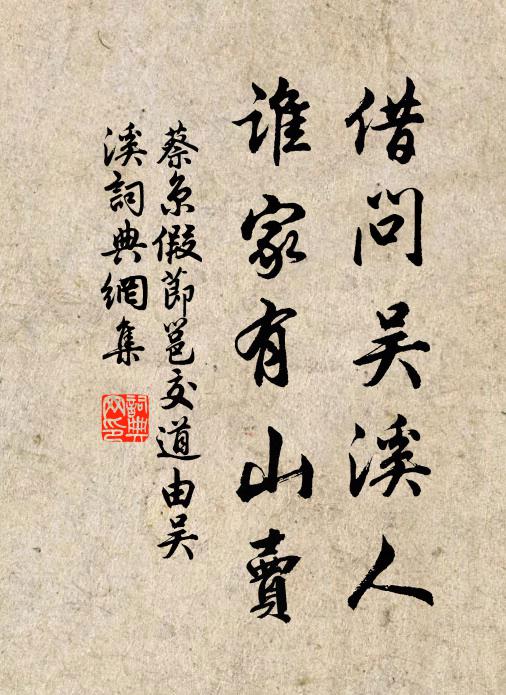 借問吴溪人
誰家有山賣
蔡京假節邕交道由吴
溪詞典網集
詞典
网印